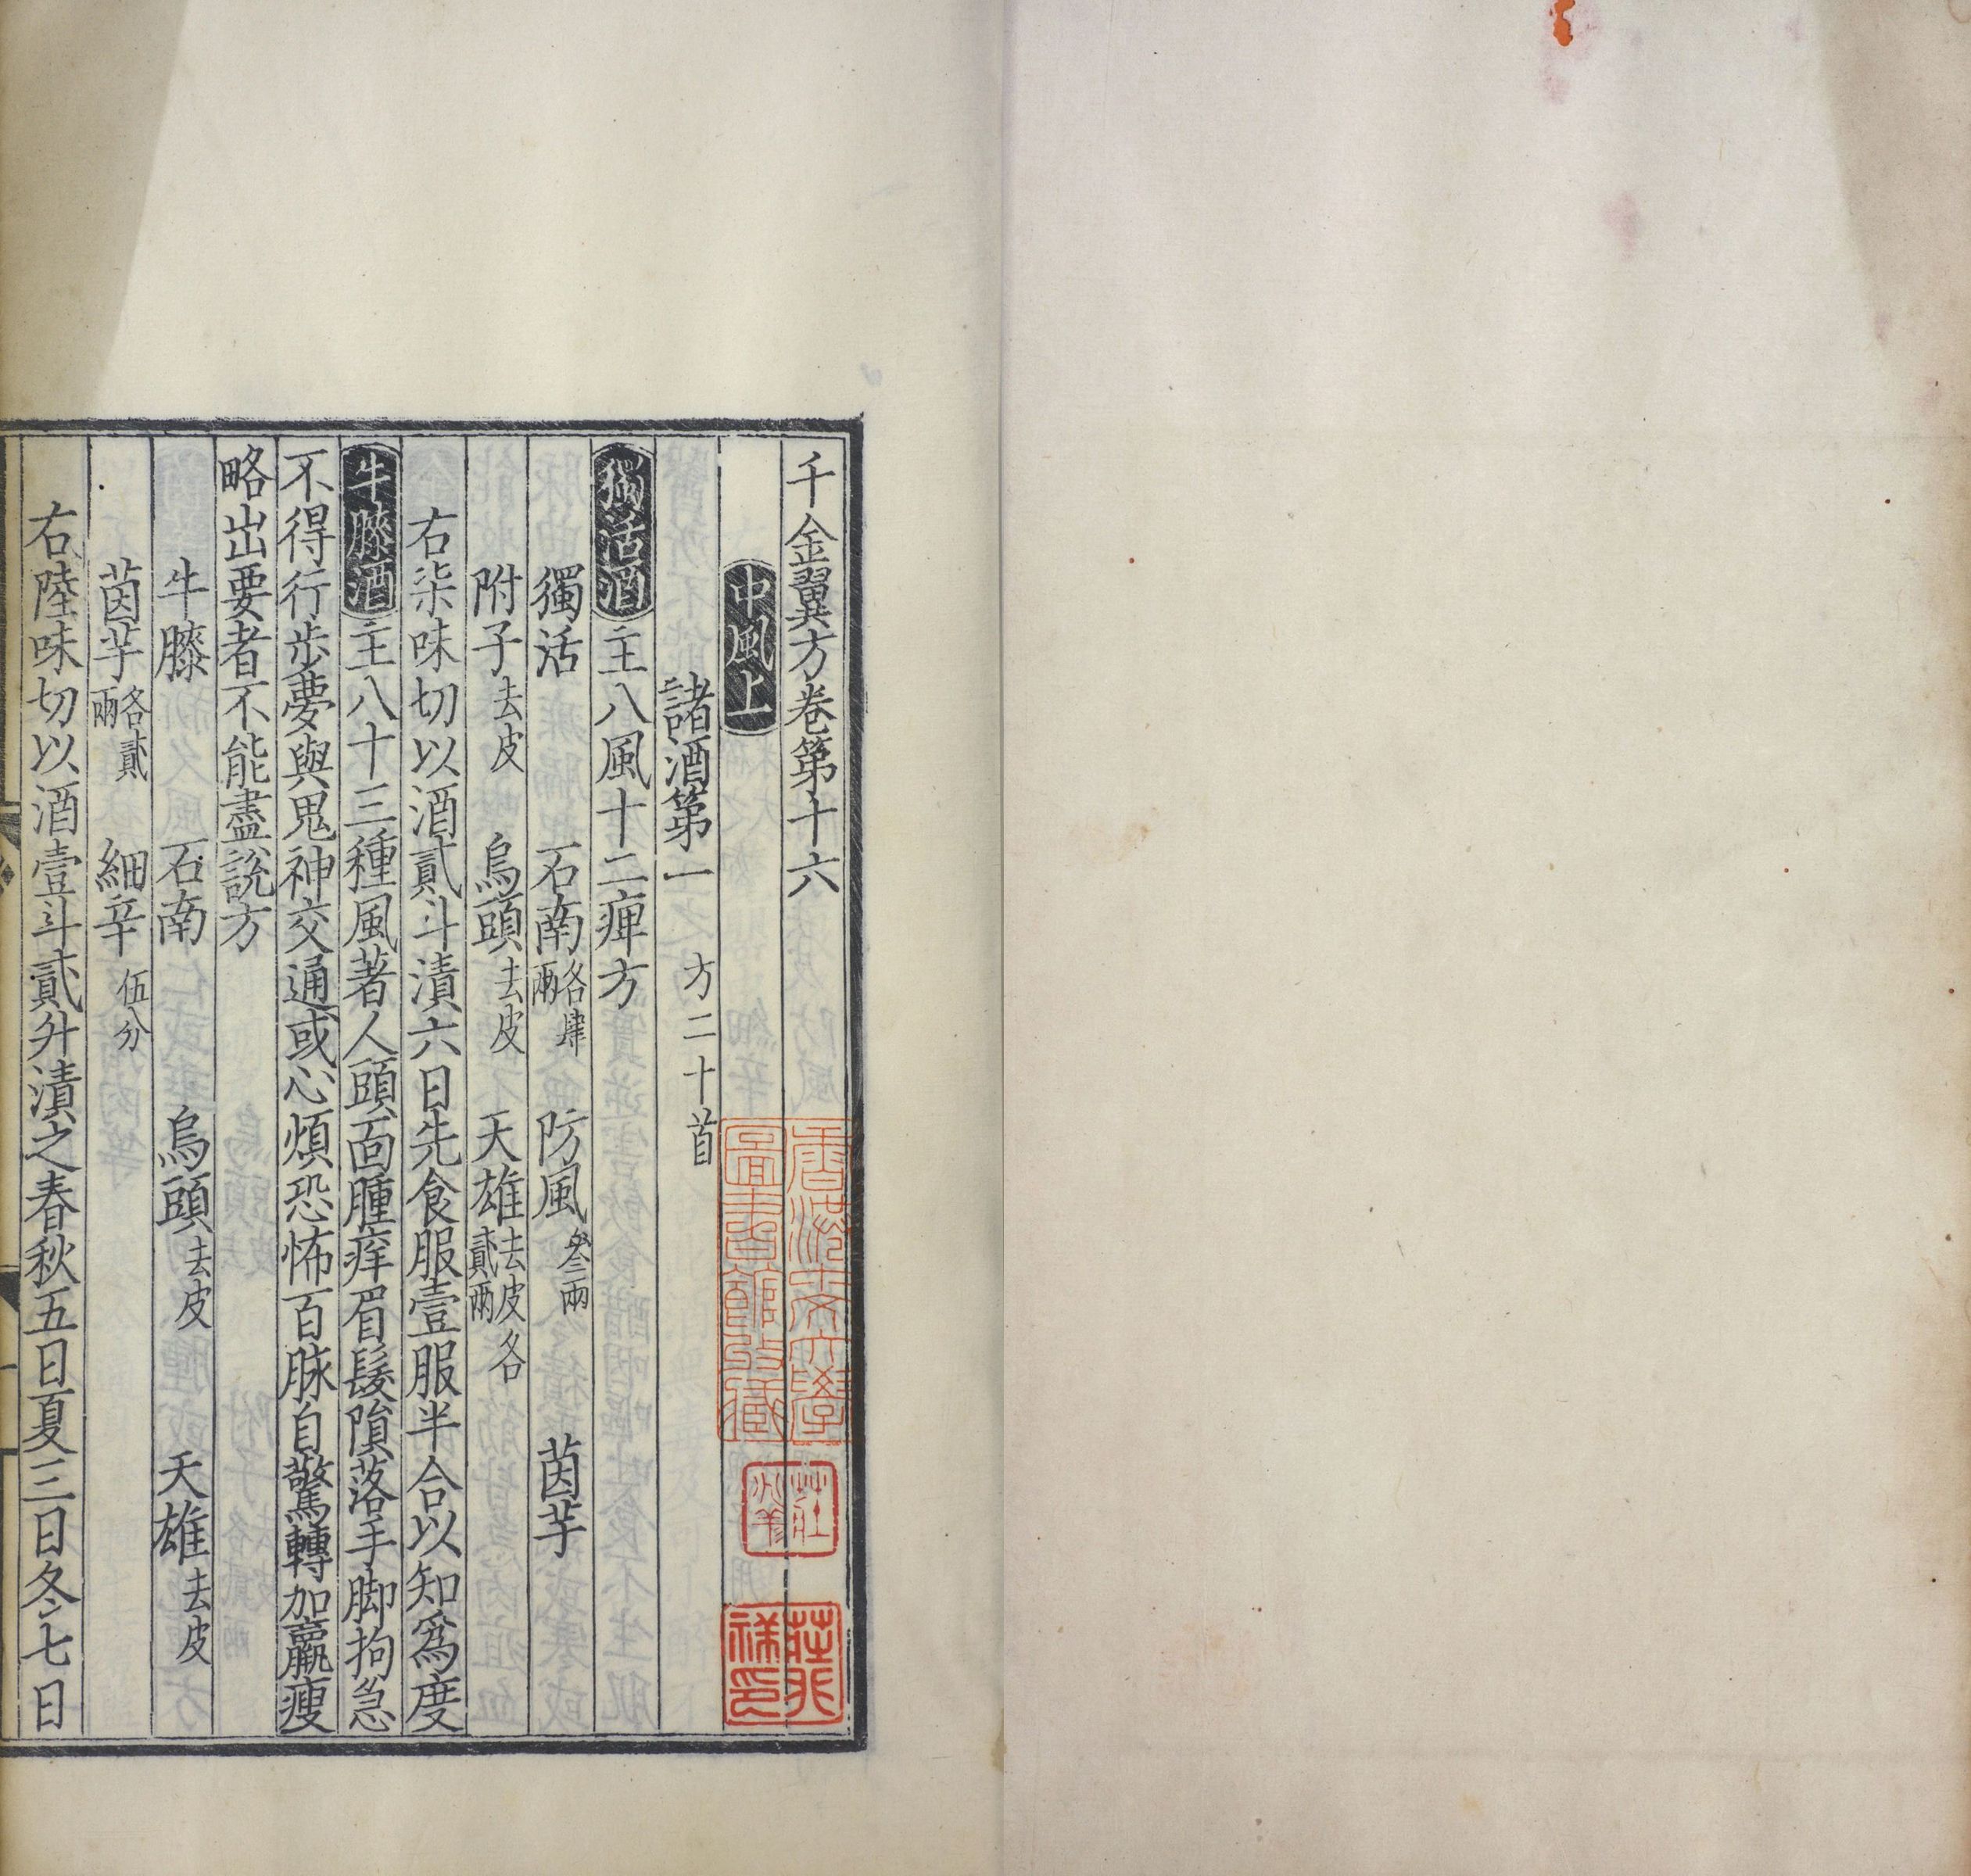 千金翼方卷第十六
中風上
諸酒第一 方二十首
獨活酒主八風十二痺方
獨活 石南各肆兩 防風叁兩 茵芋
附子去皮 烏頭去皮 天雄去皮各貳兩
右柒味切以酒貳斗漬六日先食服壹服半合以知爲度
牛膝酒主八十三種風著人頭面腫痒眉髮隕落手脚拘急
不得行步夢與鬼神交通或心煩恐怖百脉自驚轉加羸瘦
略出要者不能盡說方
牛膝 石南 烏頭去皮 天雄去皮
茵芋各貳兩 細辛伍分
右陸味切以酒壹斗貳升漬之春秋五日夏三日冬七日